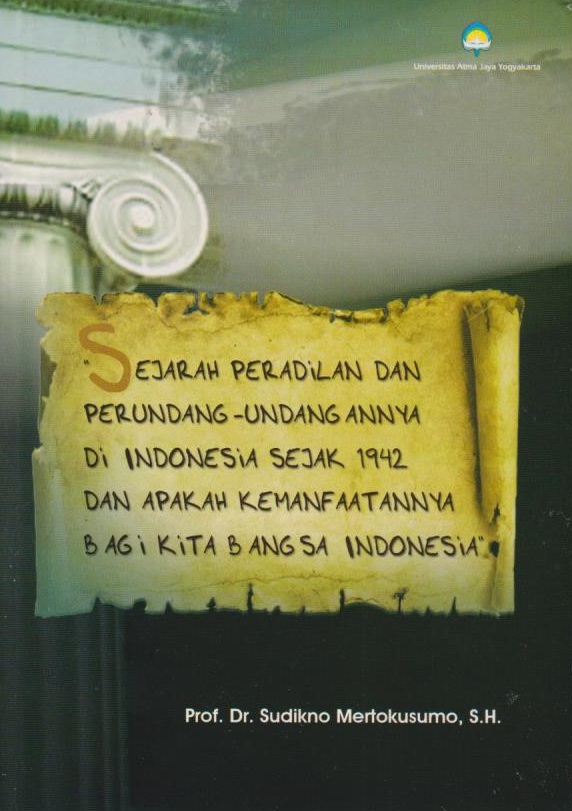 Universitas Atma Jaya Yogyakarta
"SEJARAH PERADILAN DAN
PERUNDANG-UNDANGANNYA
Di INDONESiA SEJAK 1942
DAN APAKAH KEMANFAATANNYA
BAGi KiTA BANGSA INDONESiA"
Prof. Dr. Sudikno Mertokusumo, S.H.